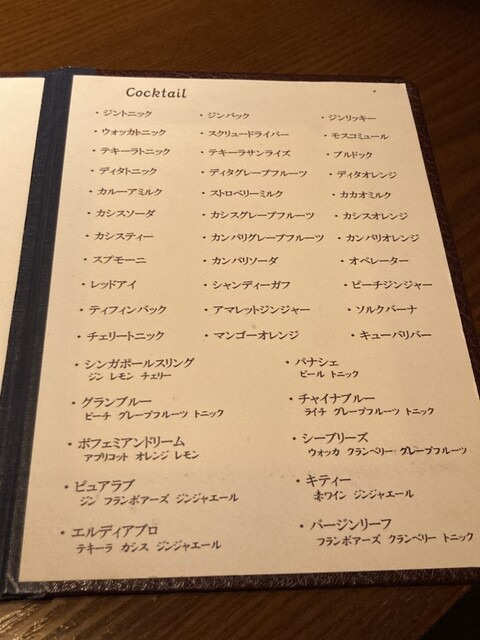 Cocktail
・ジントニック ・ジンバック ・ジンリッキー
・ウォッカトニック ・スクリュードライバー ・モスコミュール
・テキーラトニック ・テキーラサンライズ ・ブルドック
・ディタトニック ・ディタグレープフルーツ ・ディタオレンジ
・カルーアミルク ・ストロベリーミルク ・カカオミルク
・カシスソーダ ・カシスグレープフルーツ ・カシスオレンジ
・カシスティー ・カンパリグレープフルーツ ・カンパリオレンジ
・スプモーニ ・カンパリソーダ ・オペレーター
・レッドアイ ・シャンディーガフ ・ピーチジンジャー
・ティフィンバック ・アマレットジンジャー ・ソルクバーナ
・チェリートニック ・マンゴーオレンジ ・キューバリバー
・シンガポールスリング ・パナシェ
ジン レモン チェリー ビール トニック
・グランブルー ・チャイナブルー
ピーチ グレープフルーツ トニック ライチ グレープフルーツ トニック
・ボフェミアンドリーム ・シーブリーズ
アプリコット オレンジ レモン ウォッカ クランベリー グレープフルーツ
・ピュアラブ ・キティー
ジン フランボアーズ ジンジャエール 赤ワイン ジンジャエール
・エルディアブロ ・バージンリーフ
テキーラ カシス ジンジャエール フランボアーズ クランベリー トニック